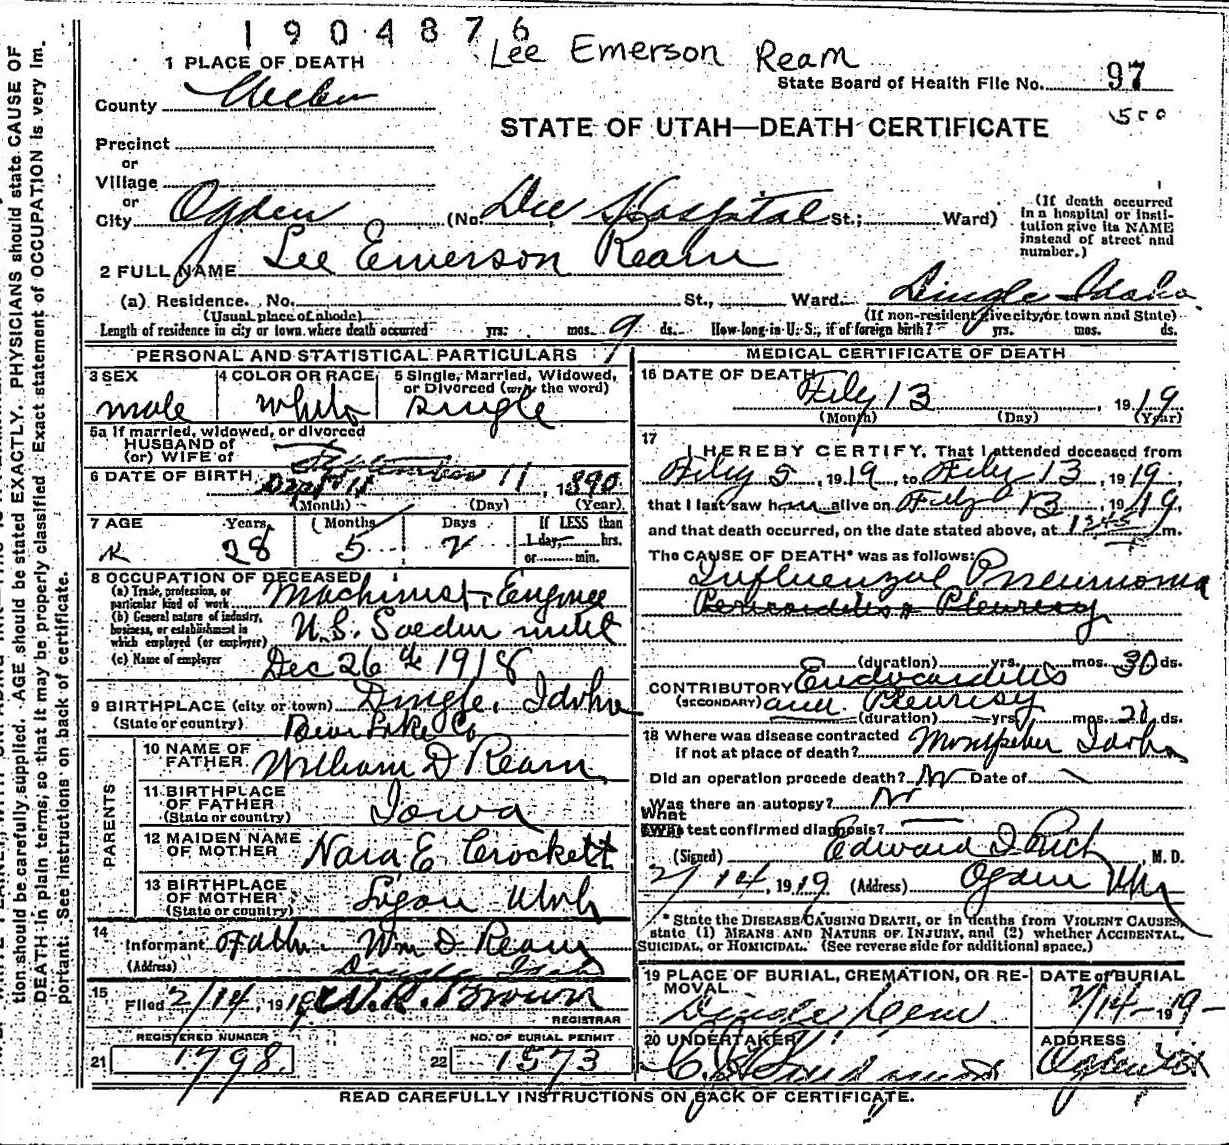 1904876
Lee Emerson Ream
1 PLACE OF DEATH
State Board of Health File No. 97
County Weber
500
STATE OF UTAH—DEATH CERTIFICATE
Precinct
or
Village
or
City Ogden (No. Dee Hospital St.; Ward)
(If death occurred in a hospital or institution give its NAME instead of street and number.)
2 FULL NAME Lee Emerson Ream
(a) Residence. No. St., Ward. Dingle Idaho
(Usual place of abode) (If non-resident give city or town and State)
Length of residence in city or town where death occurred yrs. mos. 9 ds. How long in U. S., if of foreign birth? yrs. mos. ds.
PERSONAL AND STATISTICAL PARTICULARS
3 SEX male
4 COLOR OR RACE White
5 Single, Married, Widowed, or Divorced (write the word) single
5a If married, widowed, or divorced
HUSBAND of
(or) WIFE of
6 DATE OF BIRTH September 11, 1890
(Month) (Day) (Year)
7 AGE Years 28 Months 5 Days 2 If LESS than 1 day, hrs. or min.
8 OCCUPATION OF DECEASED
(a) Trade, profession, or particular kind of work Machinist
(b) General nature of industry, business, or establishment in which employed (or employer) U.S.
(c) Name of employer Dec 26 1918
9 BIRTHPLACE (city or town) Dingle, Idaho
(State or country) Bear Lake Co
PARENTS
10 NAME OF FATHER William D Ream
11 BIRTHPLACE OF FATHER (State or country) Iowa
12 MAIDEN NAME OF MOTHER Nara E Crockett
13 BIRTHPLACE OF MOTHER (State or country) Logan Utah
14 Informant Father Wm D Ream
(Address) Dingle Idaho
15 Filed 2/14, 1919 Brown
REGISTRAR
REGISTERED NUMBER
21 1798
NO. OF BURIAL PERMIT
22 1573
MEDICAL CERTIFICATE OF DEATH
16 DATE OF DEATH Feby 13, 1919
(Month) (Day) (Year)
17 I HEREBY CERTIFY, That I attended deceased from
Feby 5, 1919, to Feby 13, 1919,
that I last saw him alive on Feby 13, 1919,
and that death occurred, on the date stated above, at 1245 m.
The CAUSE OF DEATH* was as follows:
Influenzal Pneumonia
Pericarditis & Pleurisy
(duration) yrs. mos. 30 ds.
CONTRIBUTORY Endocarditis
(SECONDARY) and Pleurisy
(duration) yrs. mos. 21 ds.
18 Where was disease contracted
if not at place of death? Montpelier Idaho
Did an operation precede death? No Date of
Was there an autopsy? No
What test confirmed diagnosis?
(Signed) Edward I Rich, M. D.
2/14, 1919 (Address) Ogden Utah
* State the DISEASE CAUSING DEATH, or in deaths from VIOLENT CAUSES, state (1) MEANS AND NATURE OF INJURY, and (2) whether ACCIDENTAL, SUICIDAL, or HOMICIDAL. (See reverse side for additional space.)
19 PLACE OF BURIAL, CREMATION, OR REMOVAL Dingle Cem
DATE of BURIAL 2/14-1919-
20 UNDERTAKER
ADDRESS Ogden
READ CAREFULLY INSTRUCTIONS ON BACK OF CERTIFICATE.
tion should be carefully supplied. AGE should be stated EXACTLY. PHYSICIANS should state CAUSE OF
DEATH in plain terms, so that it may be properly classified. Exact statement of OCCUPATION is very Im-
portant. See instructions on back of certificate.